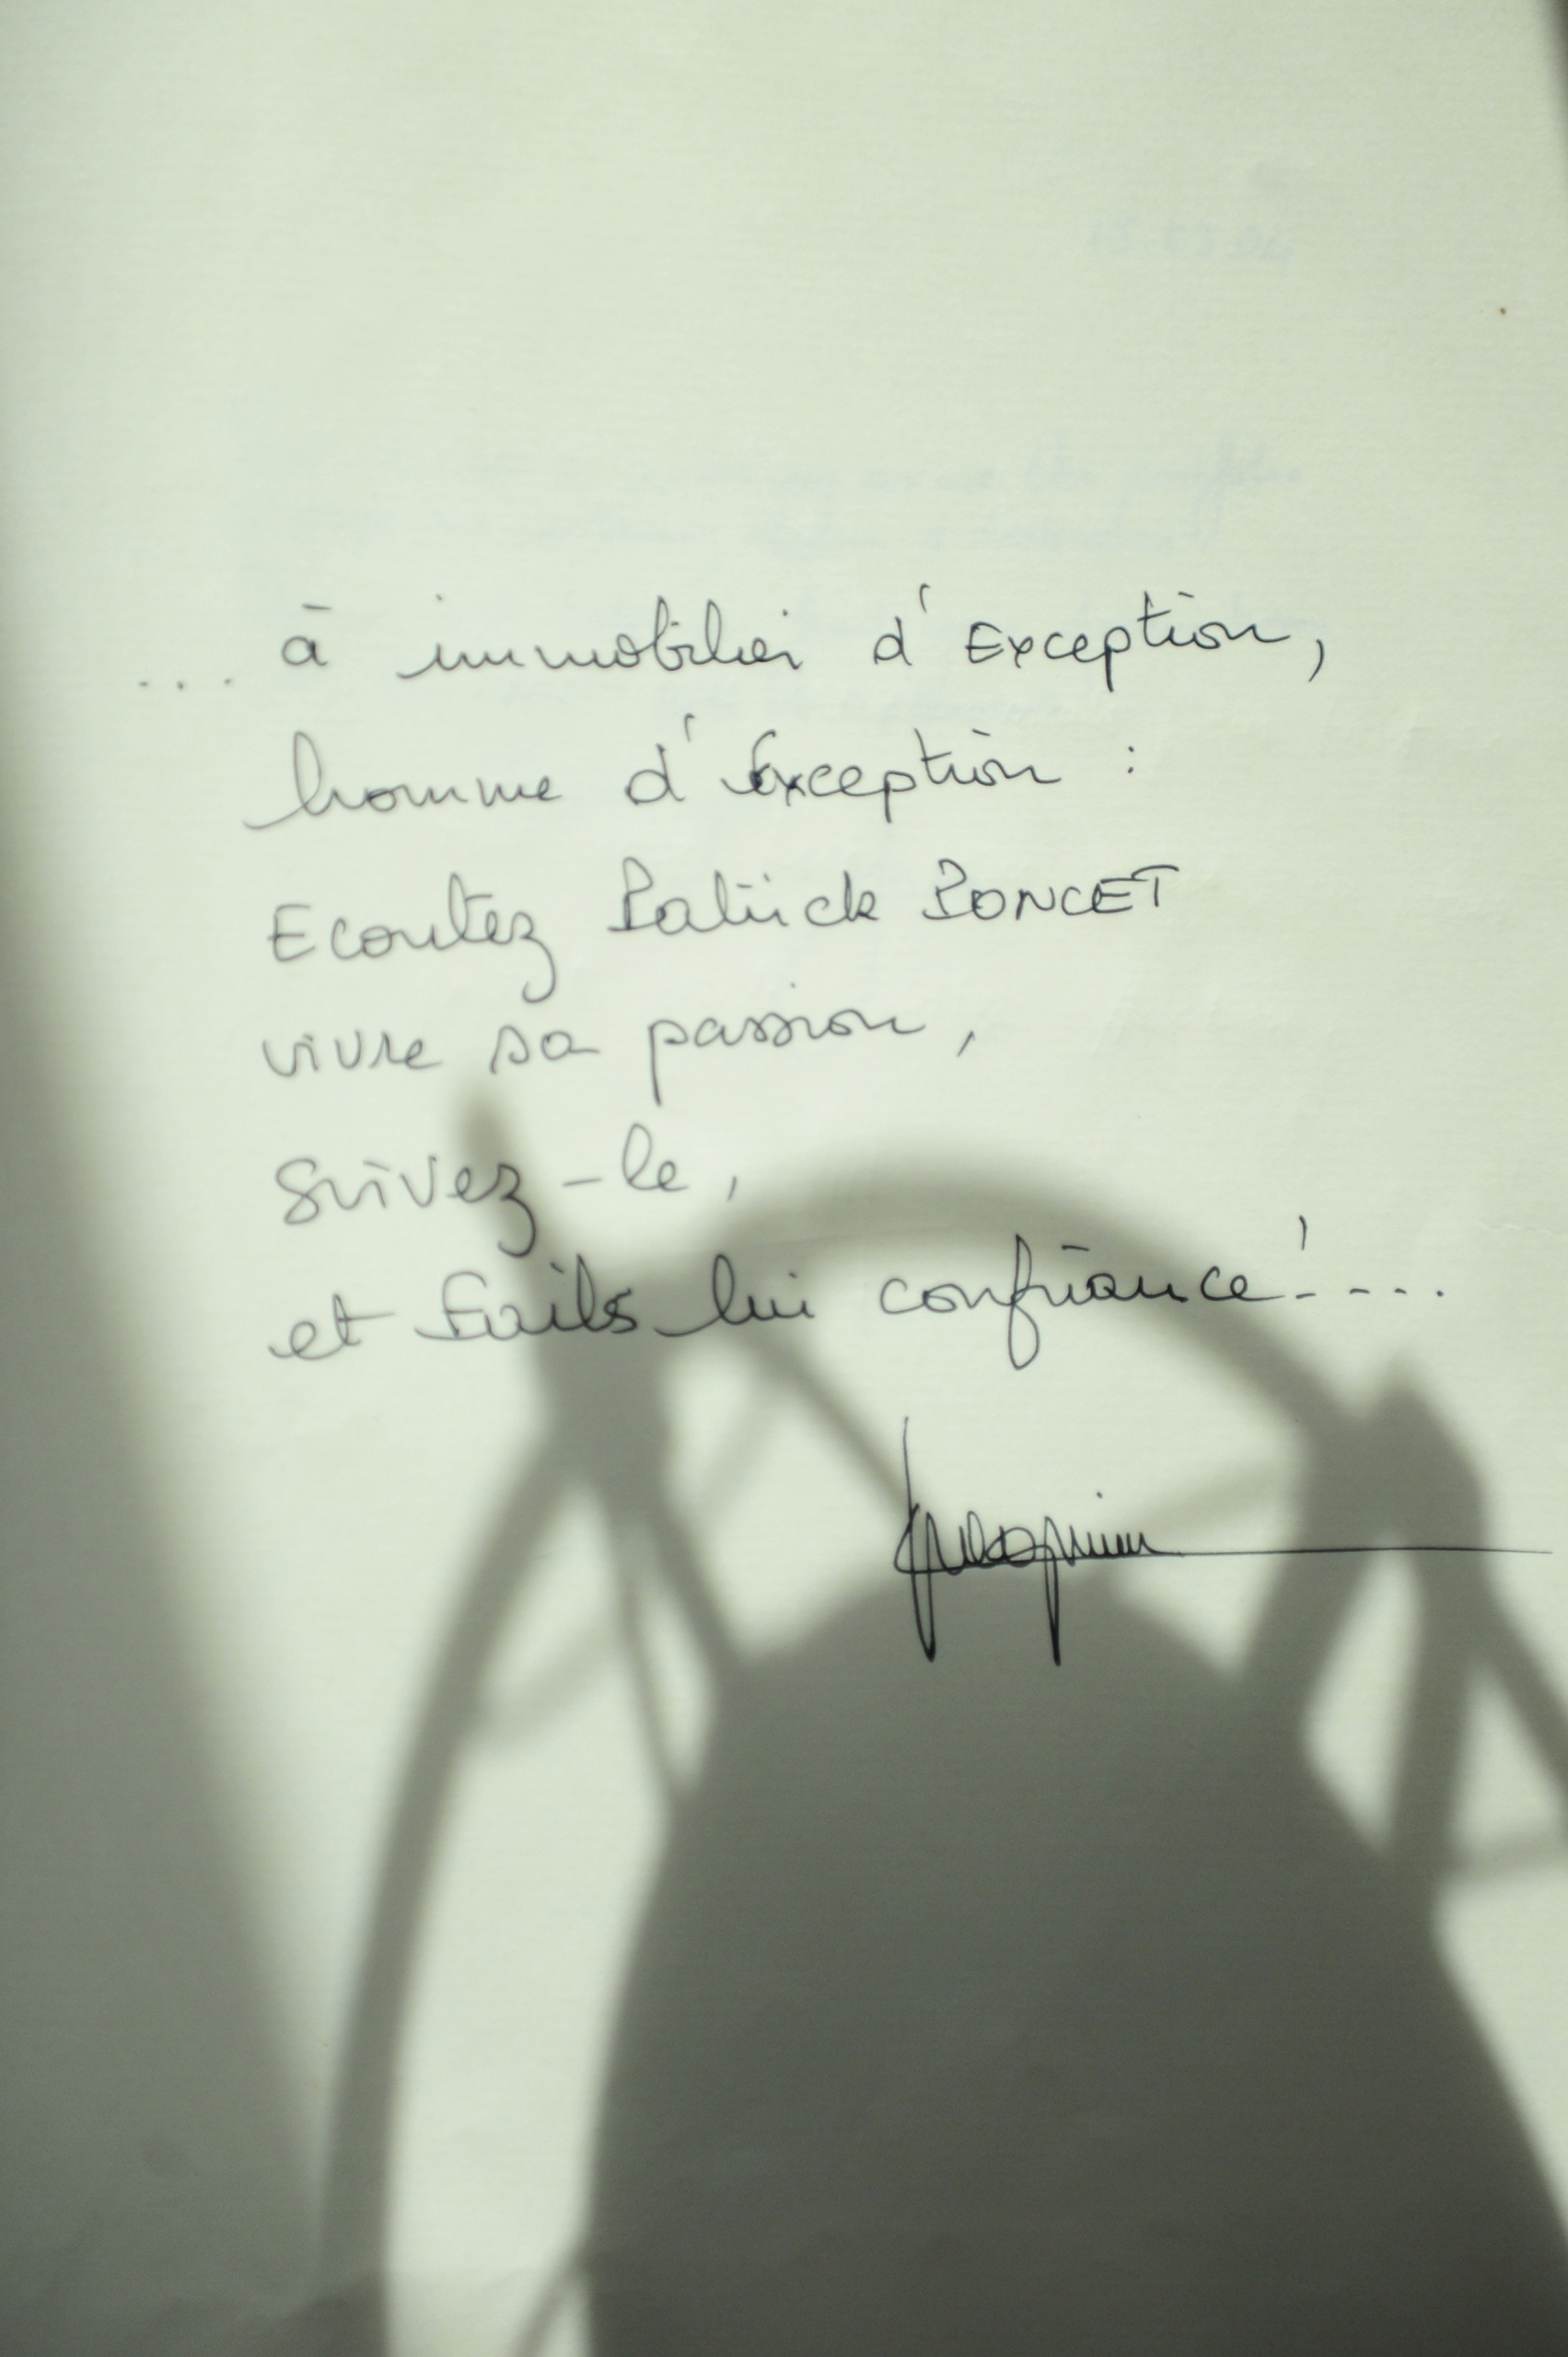 ... à immobilier d'Exception,
homme d'Exception :
Ecoutez Patrick PONCET
vivre sa passion,
Suivez-le,
et faits lui confiance !....